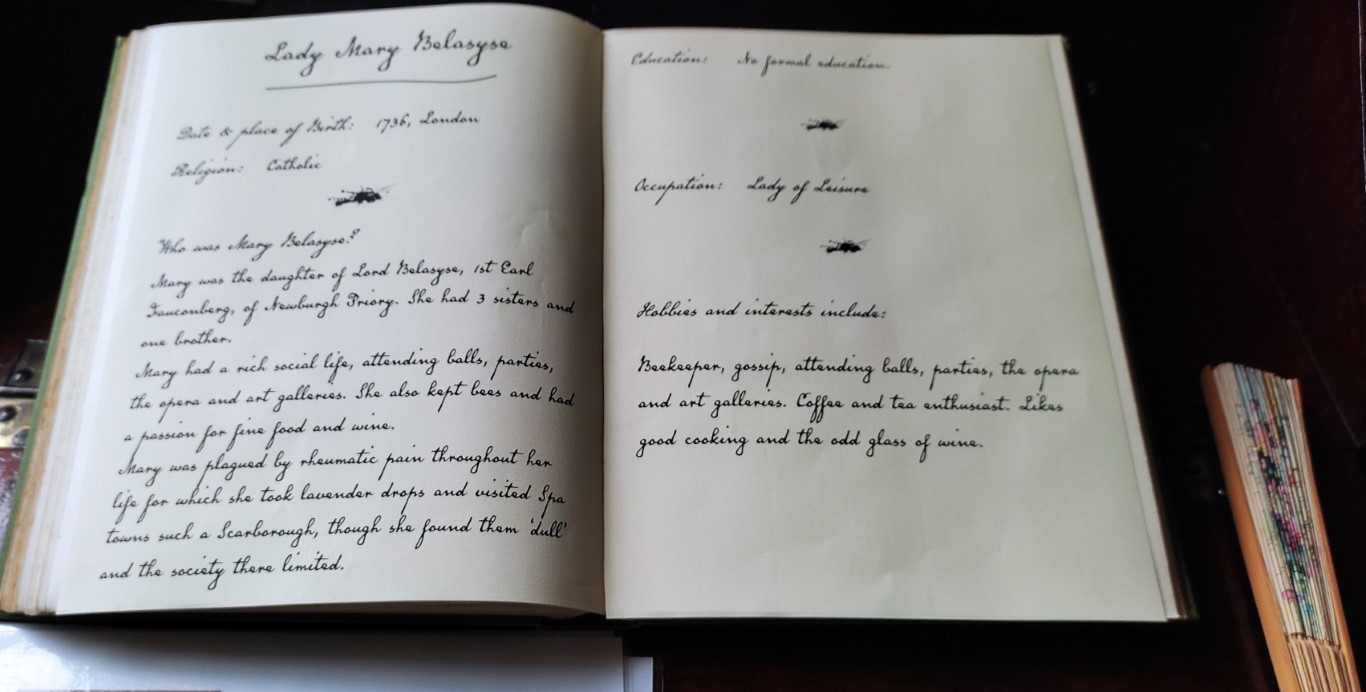 Lady Mary Belasyse
Date & place of Birth: 1736, London
Religion: Catholic
Who was Mary Belasyse?
Mary was the daughter of Lord Belasyse, 1st Earl
Fauconberg, of Newburgh Priory. She had 3 sisters and
one brother.
Mary had a rich social life, attending balls, parties,
the opera and art galleries. She also kept bees and had
a passion for fine food and wine.
Mary was plagued by rheumatic pain throughout her
life for which she took lavender drops and visited Spa
towns such a Scarborough, though she found them 'dull'
and the society there limited.
Education: No formal education.
Occupation: Lady of Leisure
Hobbies and interests include:
Beekeeper, gossip, attending balls, parties, the opera
and art galleries. Coffee and tea enthusiast. Likes
good cooking and the odd glass of wine.